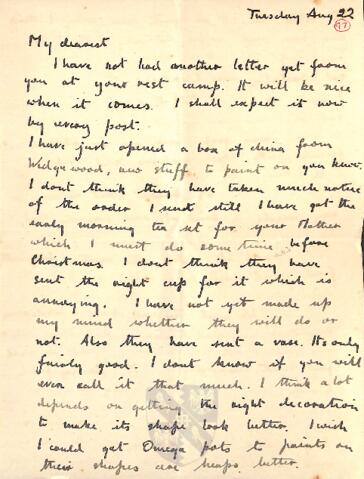 Tuesday Aug 22
97
My dearest
I have not had another letter yet from
you at your rest camp. It will be nice
when it comes. I shall expect it now
by every post.
I have just opened a box of china from
Wedgwood, new stuff to paint on you know.
I dont think they have taken much notice
of the order I sent still I have got the
early morning tea set for your Mother
which I must do some time before
Christmas. I dont think they have
sent the right cup for it which is
annoying. I have not yet made up
my mind whether they will do or
not. Also they have sent a vase. Its only
fairly good. I dont know if you will
even call it that much. I think a lot
depends on getting the right decoration
to make its shape look better. I wish
I could get Omega pots to paint on
their shapes are heaps better.